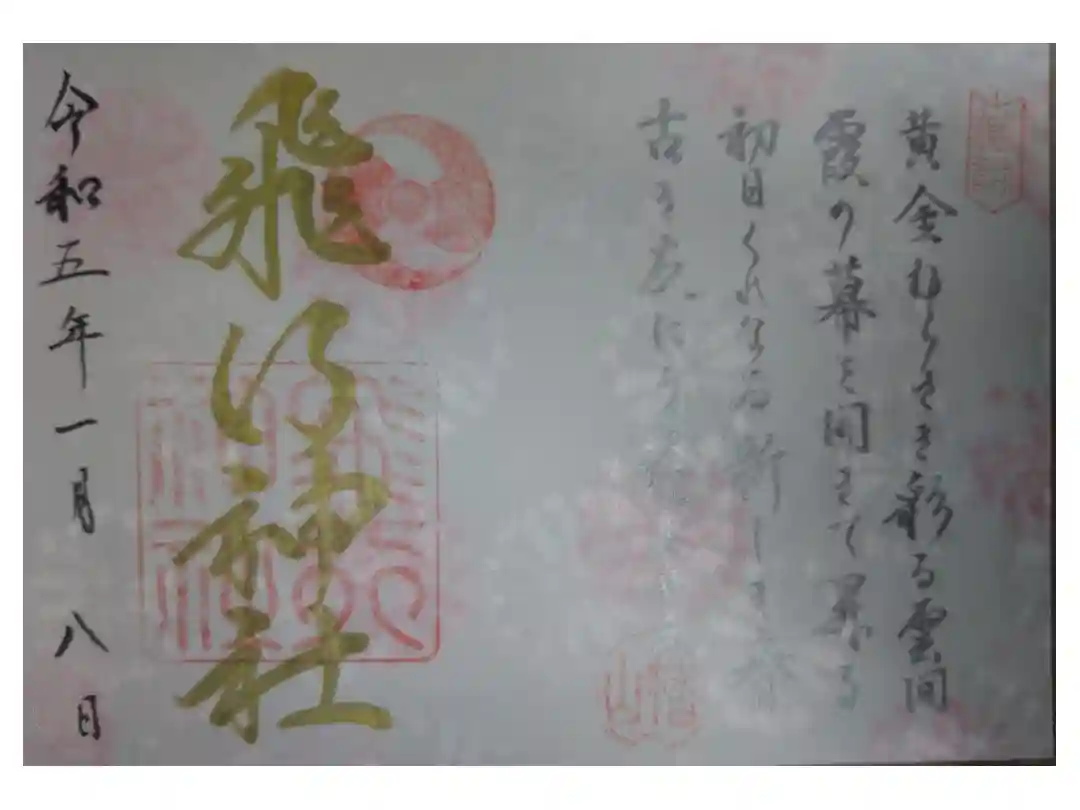 黄金むらさき彩る雲間
霞の幕を開きて昇る
初日くれなゐ新しき
古き
飛行神社
令和五年一月 八日